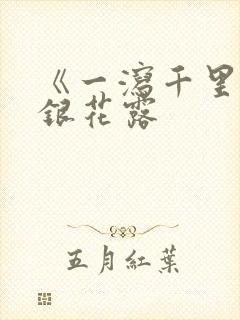 《一瀉千里
銀花露
五月紅葉